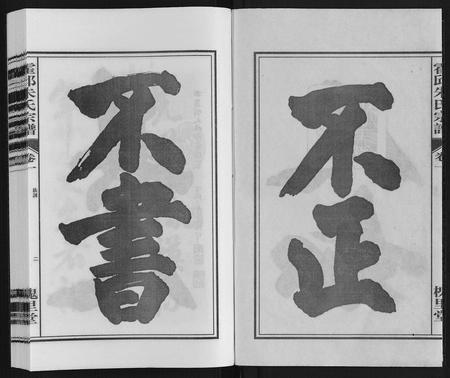 霍邱朱氏宗譜
卷一
槐里堂
不正
不書
霍邱朱氏宗譜
卷一
二
槐里堂